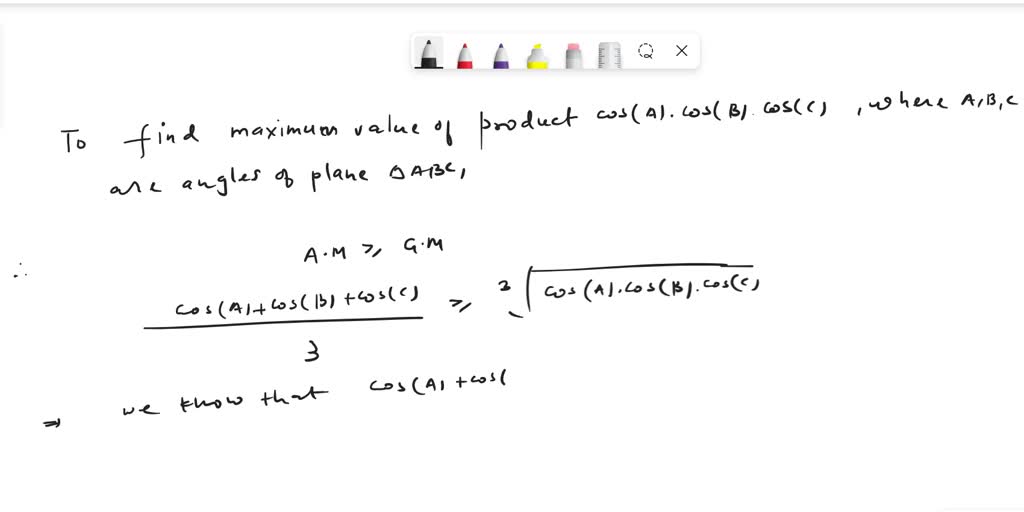 To find maximum value of product cos(A).cos(B).cos(C) , where A,B,C
are angles of plane ΔABC,
∴ A.M ≥ G.M
cos(A)+cos(B)+cos(C) ≥ 3√cos(A).cos(B).cos(C)
3
⇒ we know that cos(A)+cos(